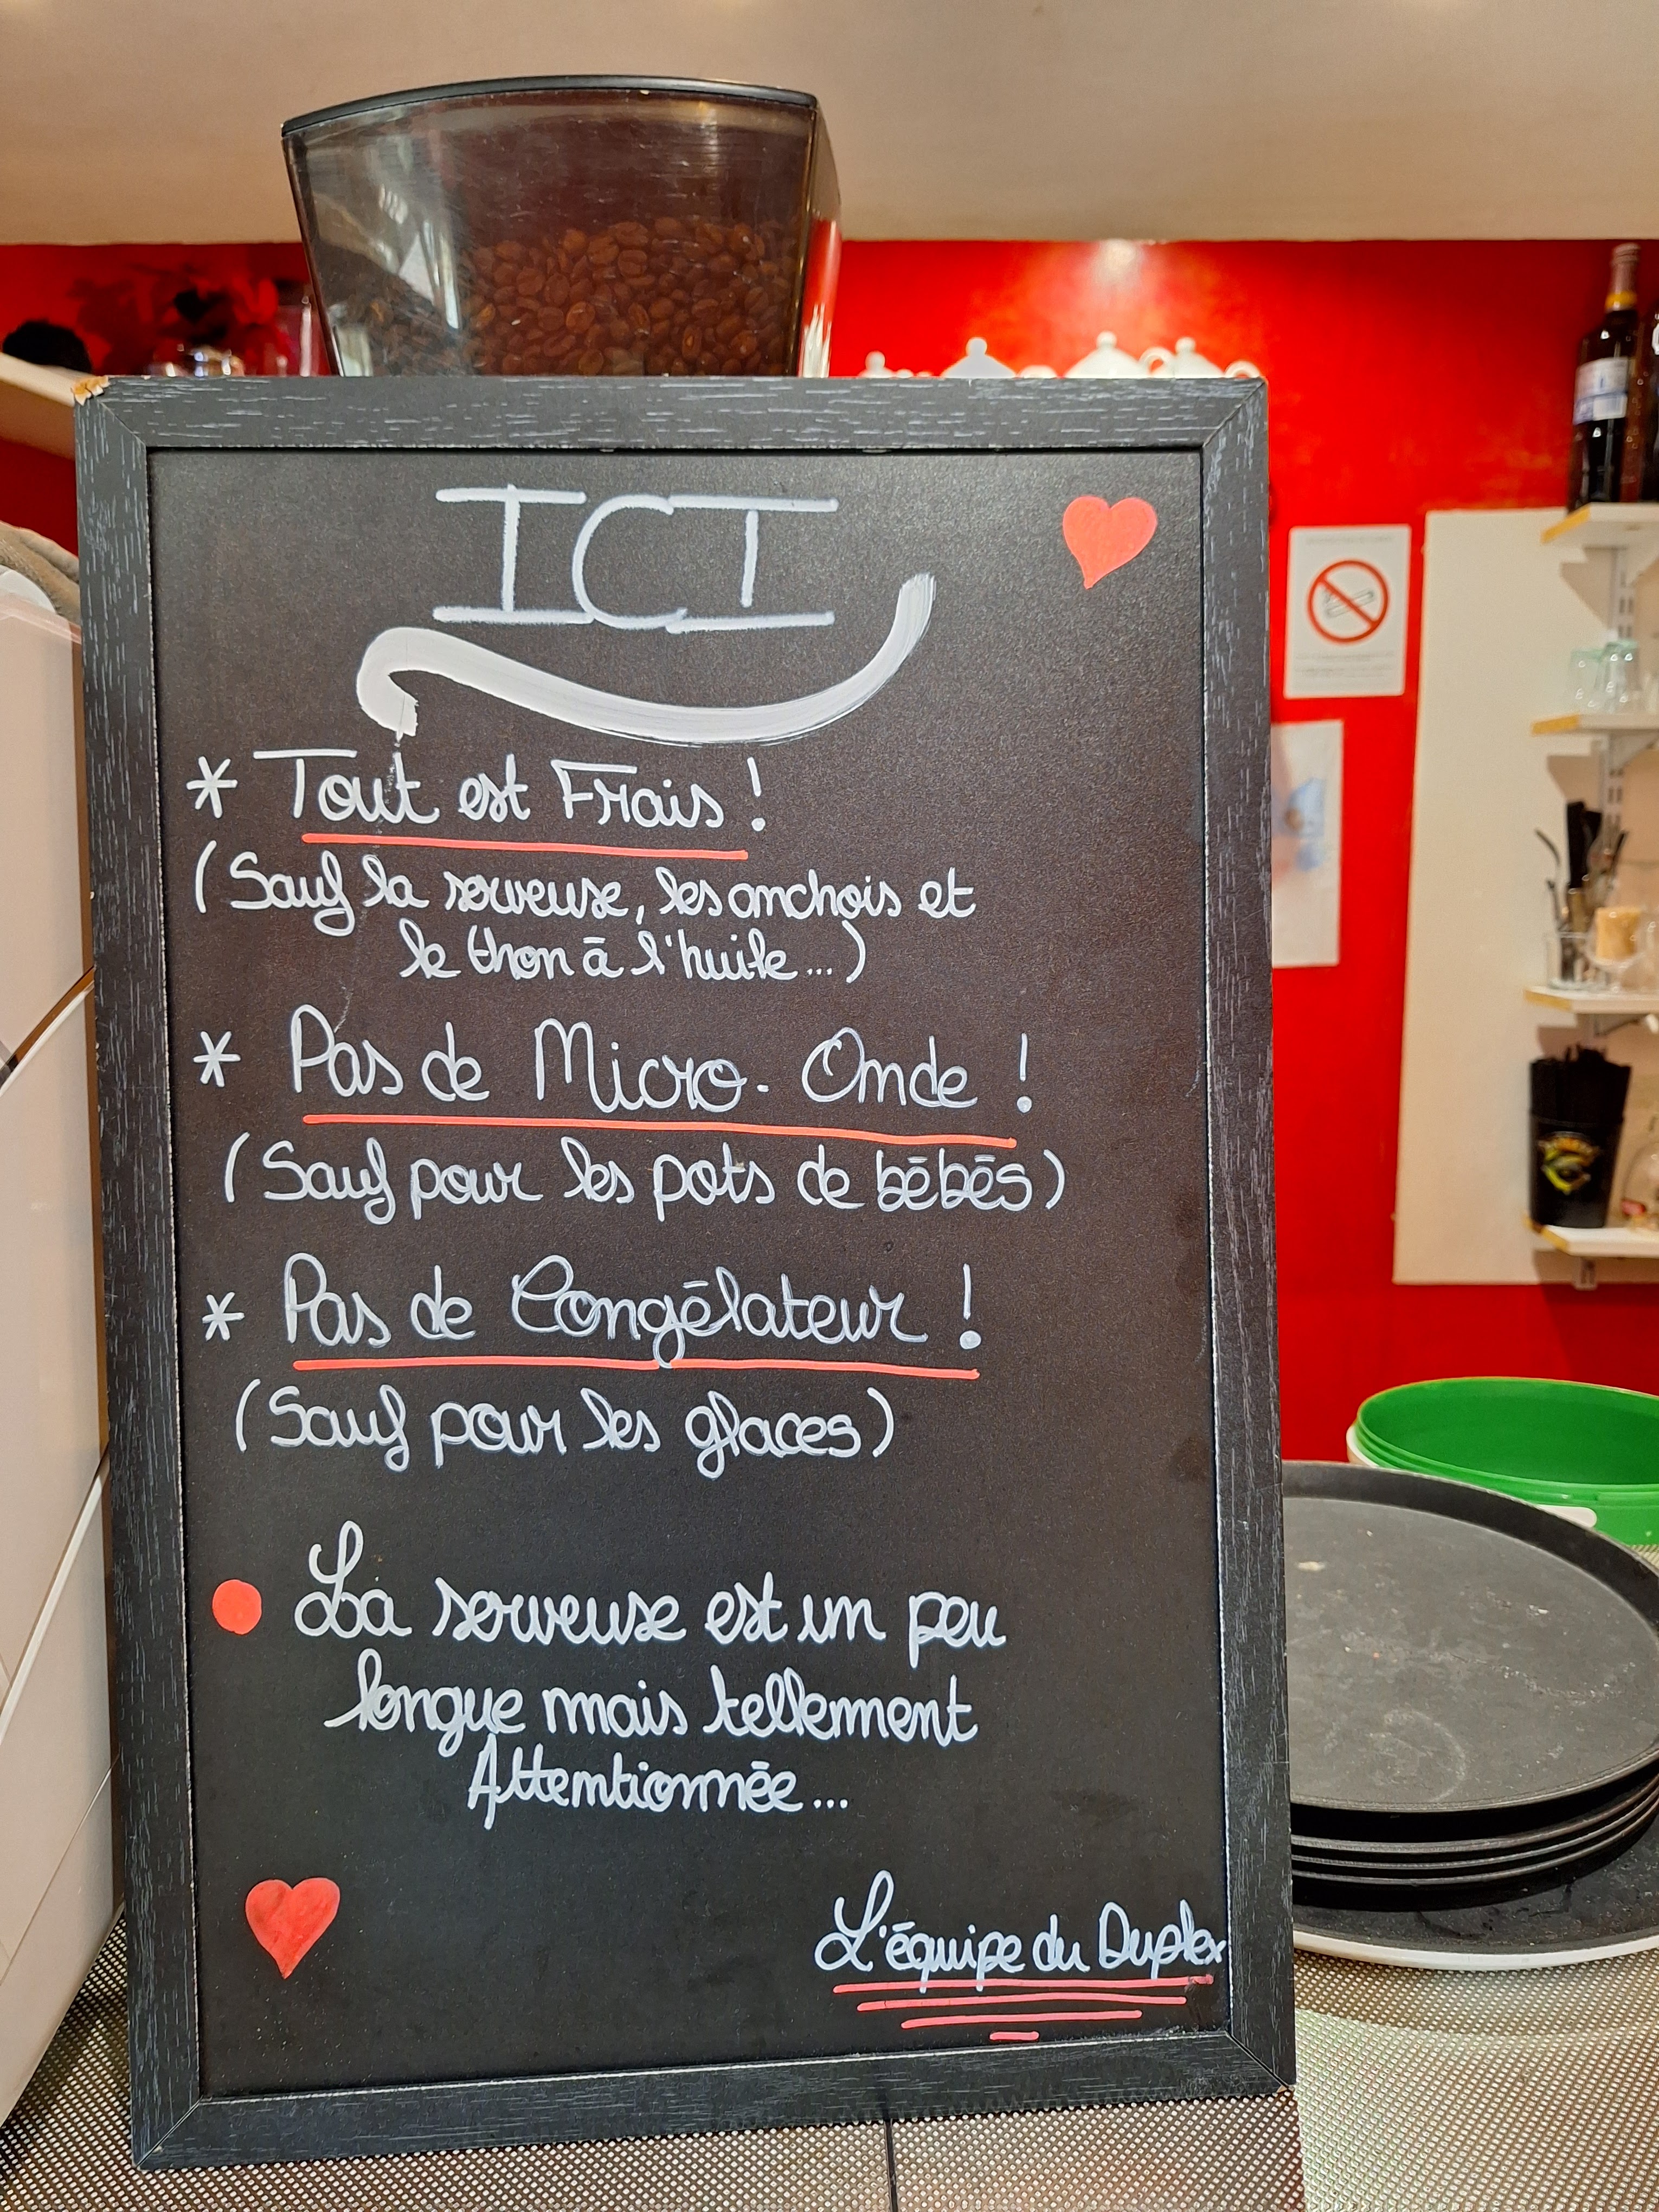 ICI
* Tout est Frais !
(Sauf la serveuse, les anchois et
le thon à l'huile...)
* Pas de Micro-Onde !
(Sauf pour les pots de bébés)
* Pas de Congélateur !
(Sauf pour les glaces)
La serveuse est un peu
longue mais tellement
Attentionnée...
L'équipe du Duplex